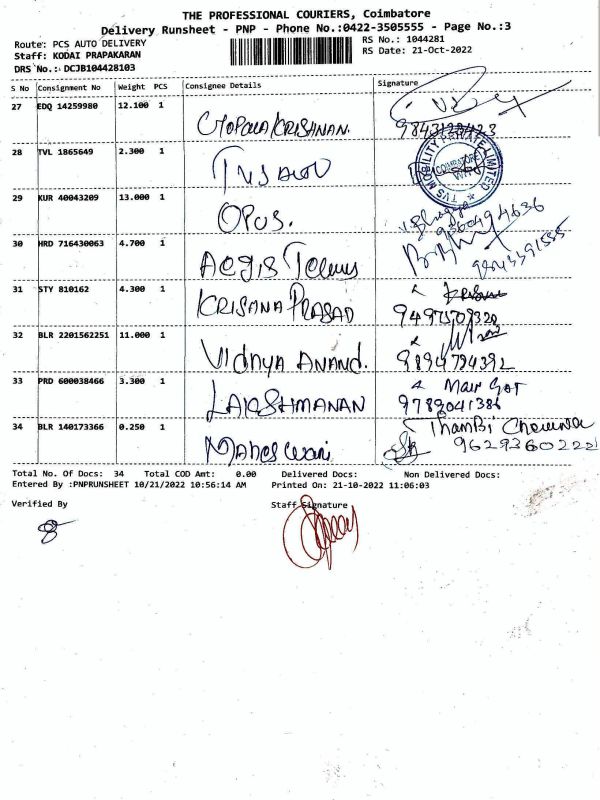 THE PROFESSIONAL COURIERS, Coimbatore
Delivery Runsheet - PNP - Phone No.:0422-3505555 - Page No.:3
Route: PCS AUTO DELIVERY
RS No.: 1044281
Staff: KODAI PRAPAKARAN
RS Date: 21-Oct-2022
DRS No.: DCJB104428103
S No Consignment No Weight PCS Consignee Details Signature
27 EDQ 14259980 12.100 1
GOPALA KRISHNAN.
28 TVL 1865649 2.300 1
TVS MOBILITY PRIVATE LIMITED
COIMBATORE
29 KUR 40043209 13.000 1
OPUS.
9360494636
30 HRD 716430063 4.700 1
AEGIS
31 STY 810162 4.300 1
KRISHNA PRASAD
32 BLR 2201562251 11.000 1
Vidhya ANAND.
9894794392
33 PRD 600038466 3.300 1
LAKSHMANAN
9789041386
34 BLR 140173366 0.250 1
Maheswari
Thambi
9629360222
Total No. Of Docs: 34 Total COD Amt: 0.00 Delivered Docs: Non Delivered Docs:
Entered By :PNPRUNSHEET 10/21/2022 10:56:14 AM Printed On: 21-10-2022 11:06:03
Verified By Staff Signature